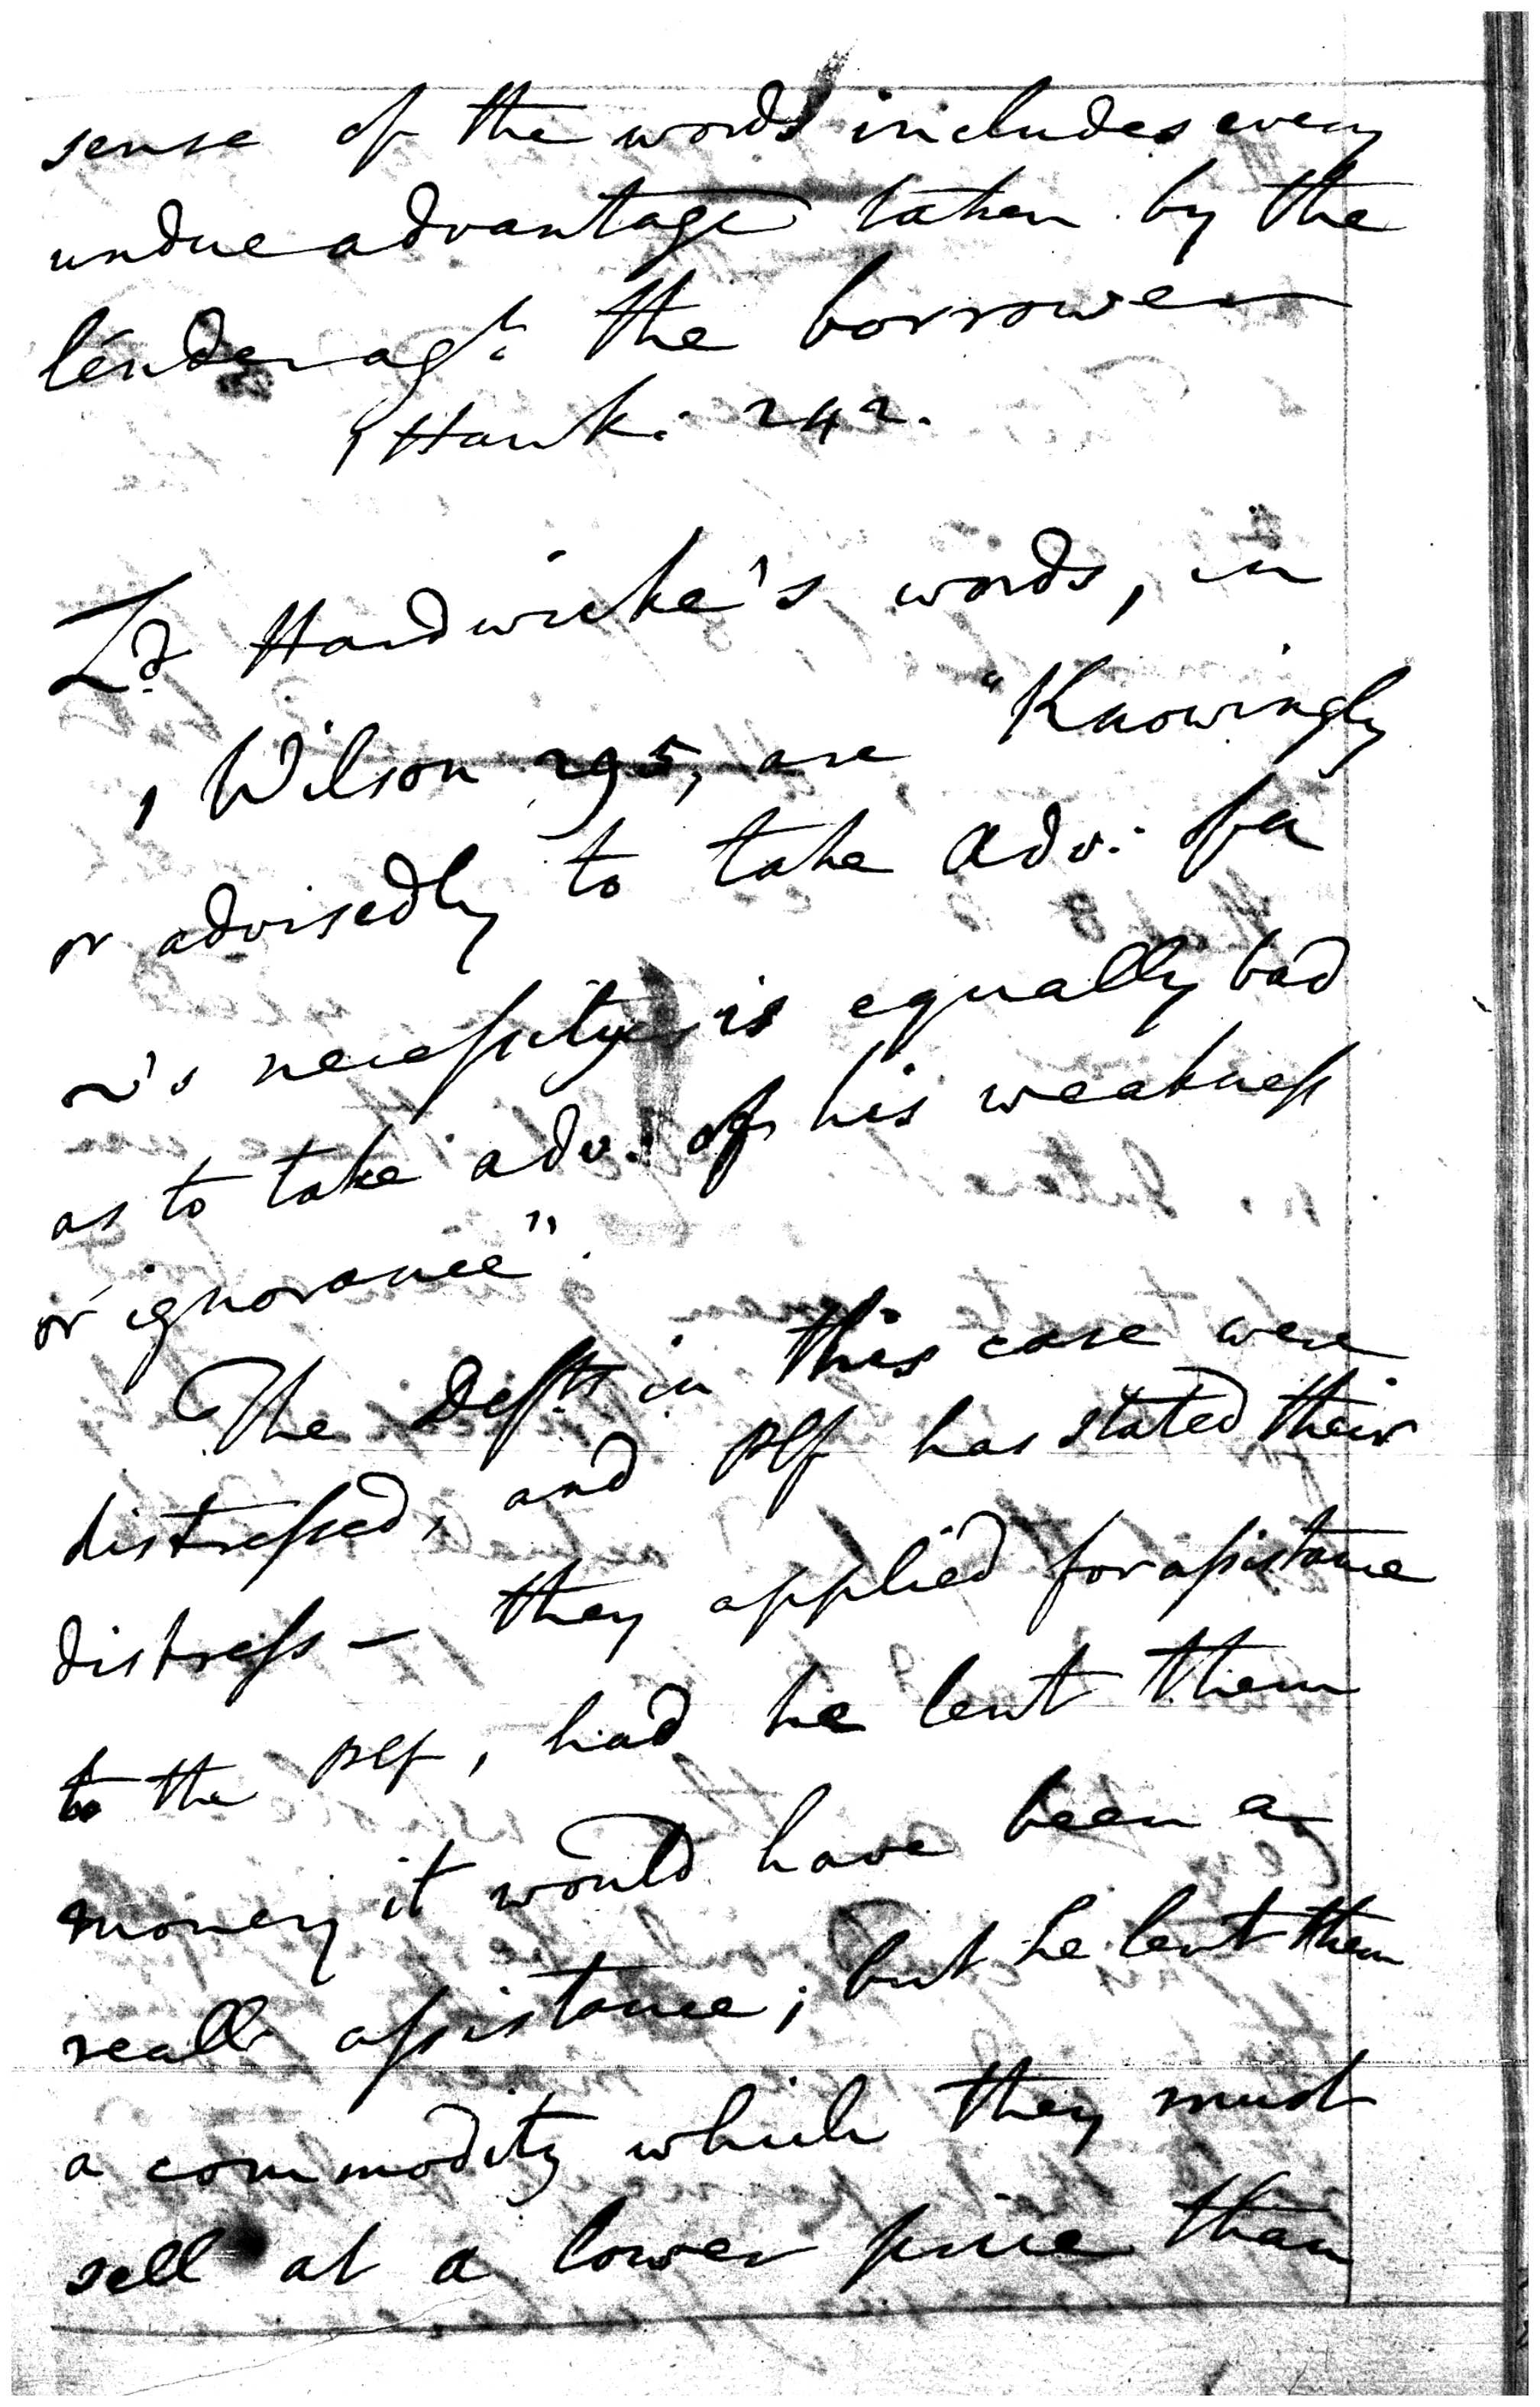 sense of the words includes every
undue advantage taken by the
lender agt. the borrower
1 Hawk. 242.
Ld. Hardwicke's words, in
1 Wilson 295, are "Knowingly
or advisedly to take adv: of a
's necessity is equally bad
as to take adv: of his weakness
or ignorance".
The Defts in this case were
distressed, and plf has stated their
distress — they applied for assistance
to the plf, had he lent them
money it would have been a
reall assistance; but he lent them
a commodity which they must
sell at a lower price than